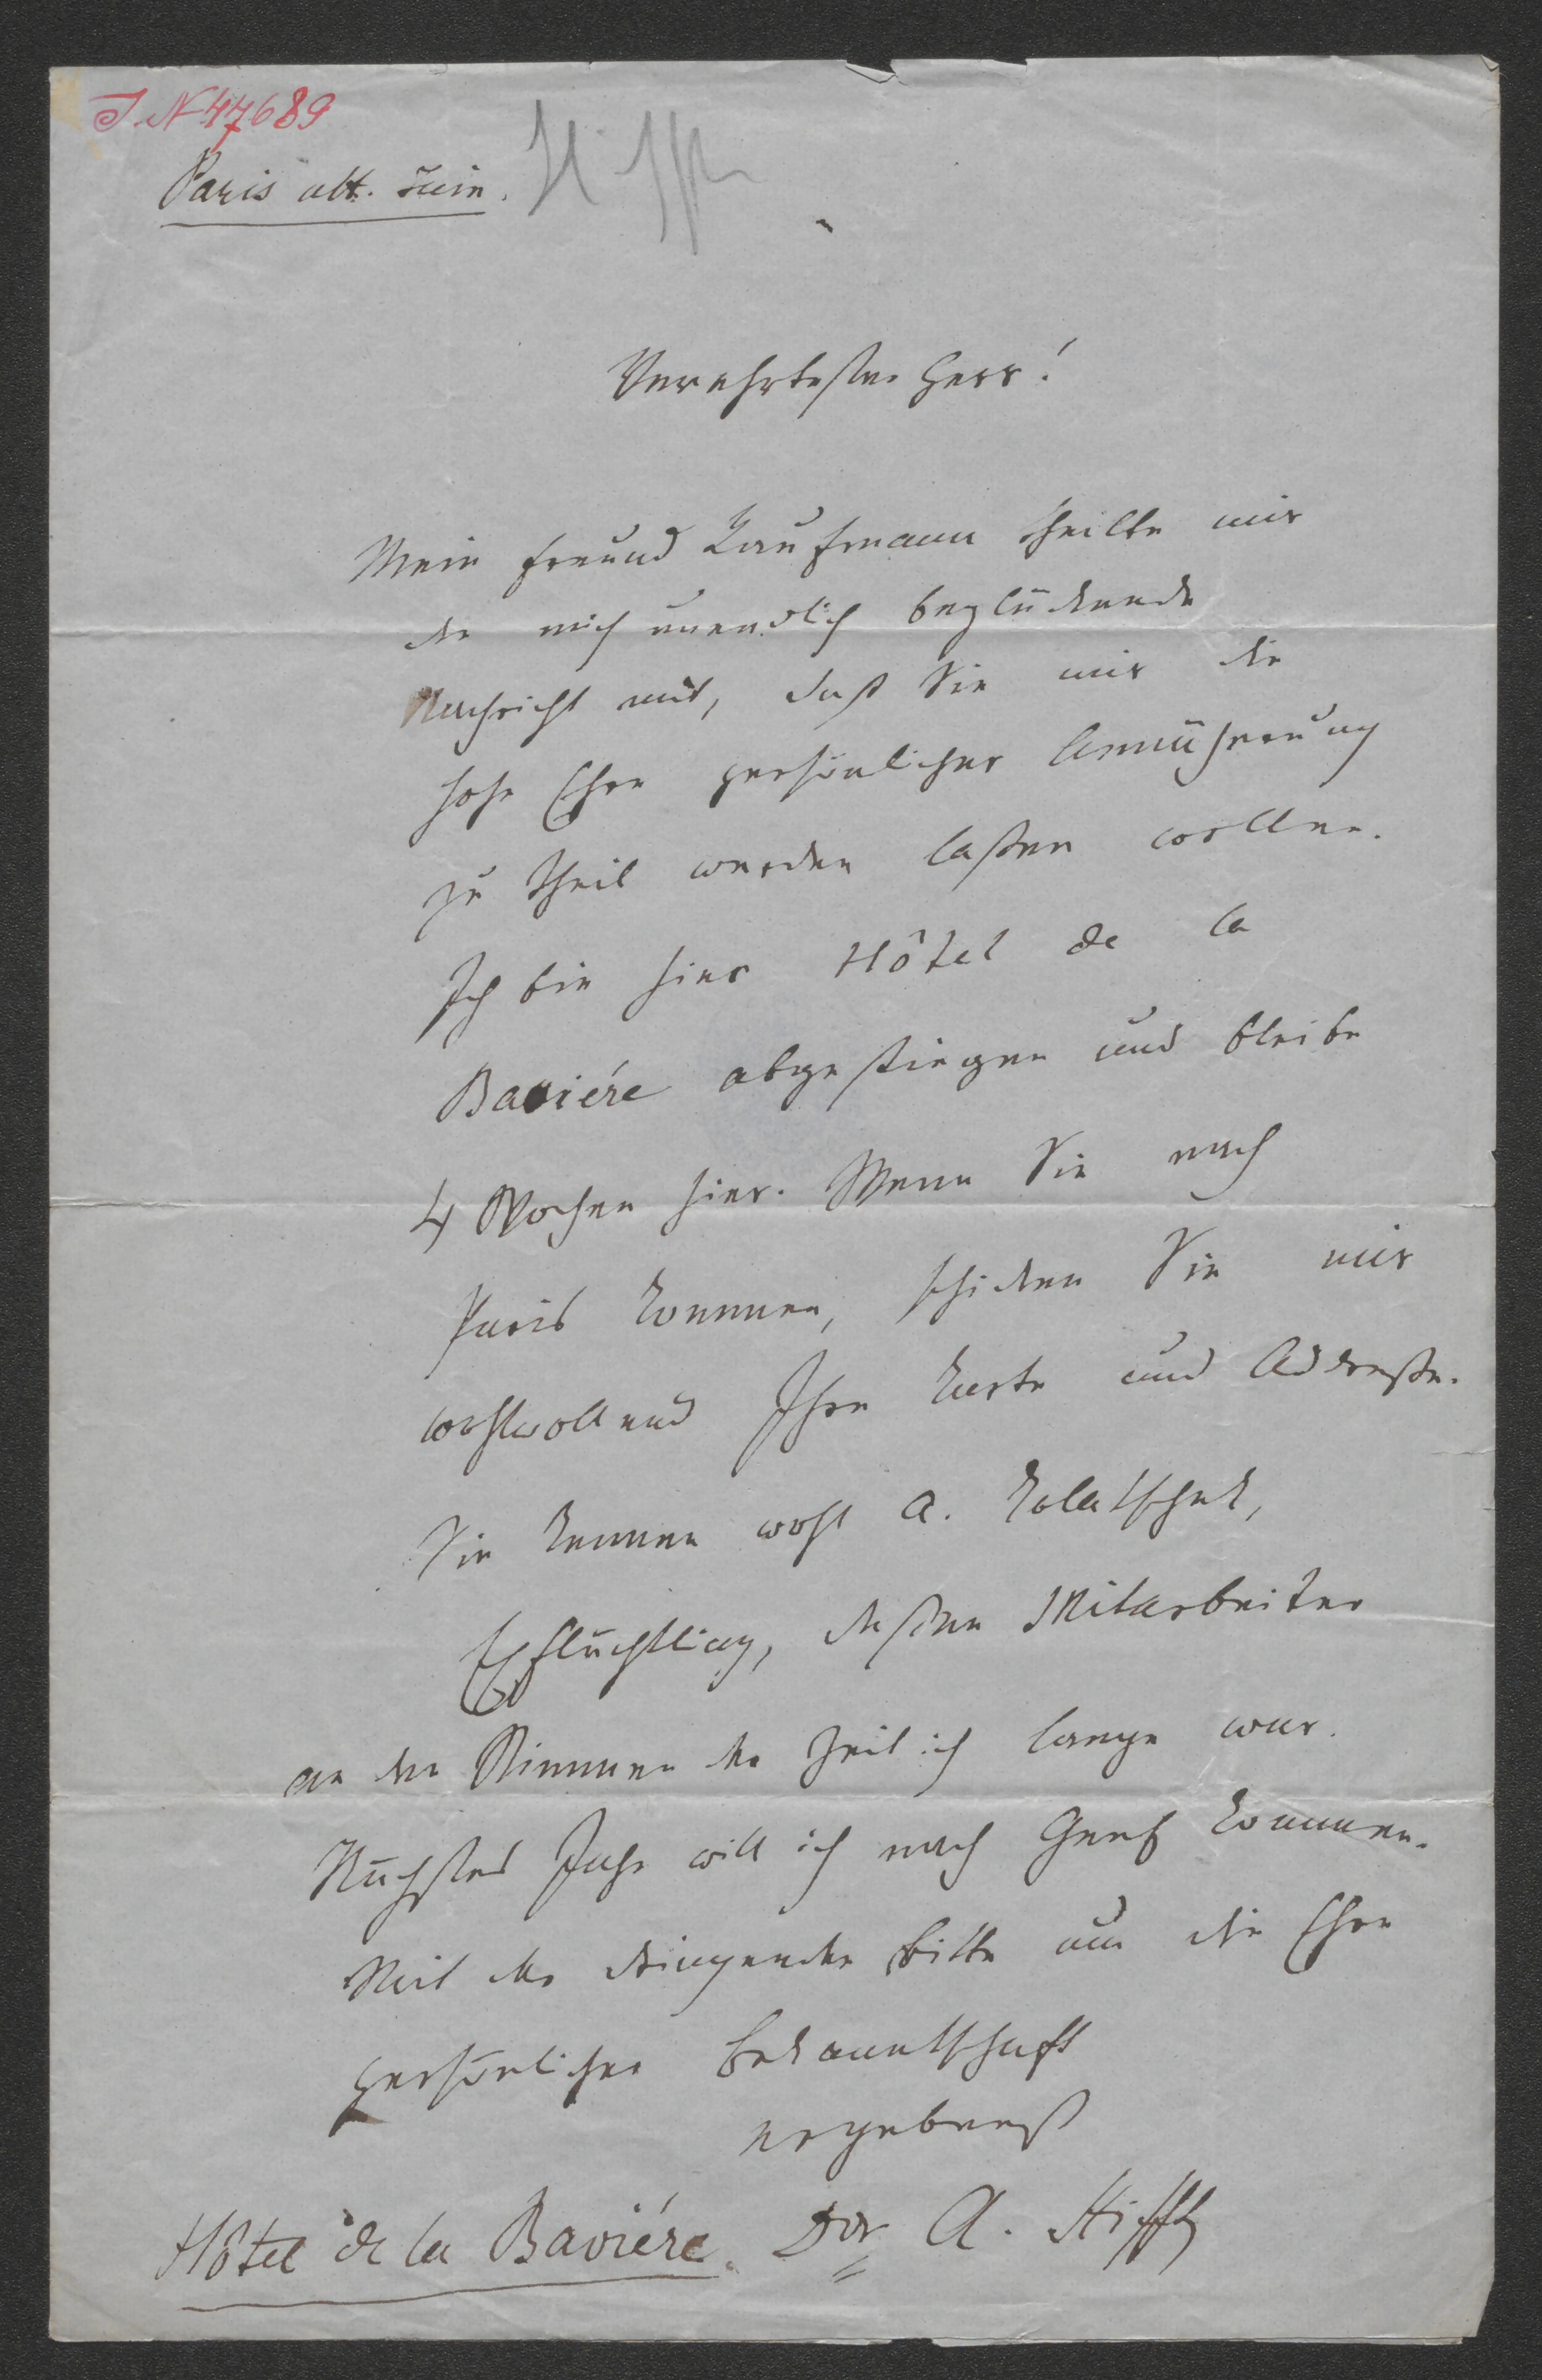 J. N 47689
Paris ult. Juin.
Verehrtester Herr!
Mein Freund Kaufmann theilte mir
die mich unendlich beglückende
Nachricht mit, daß Sie mir die
hohe Ehre persönlicher
zu Theil werden laßen wollen.
Ich bin hier Hôtel de la
Baviére abgestiegen und bleibe
4 Wochen hier. Wenn Sie nach
Paris kommen, schicken Sie mir
wohlwollend Ihre Karte und Addreße.
Sie kennen wohl A. Kolatschek,
Exflüchtling, deßen Mitarbeiter
an den Stimmen der Zeit ich lange war.
Nächstes Jahr will ich nach Genf kommen.
Mit der dringenden Bitte um die Ehre
persönlicher Bekanntschaft
ergebenst
Hôtel de la Baviére. Dor A. Stifft